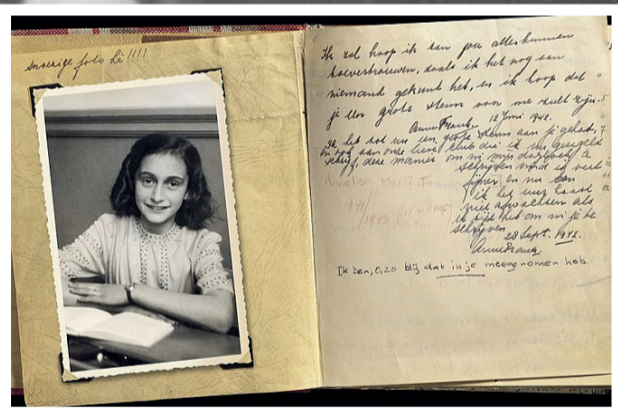 snoezige foto hè!!!!
Ik zal hoop ik aan jou alles kunnen
toevertrouwen, zoals ik het nog aan
niemand gekund heb, en ik hoop dat
je een grote steun voor me zult zijn.
Anne Frank. 12 Juni 1942.
Ik heb tot nu een grote steun aan je gehad,
en ook aan onze lieve club die ik nu geregeld
schrijf, deze manier om in mijn dagboek te
schrijven vind ik veel
fijner en nu kan
ik het uur haast
niet afwachten als
ik tijd heb om in je te
schrijven.
28 Sept. 1942.
Anne Frank.
Ik ben, O, zo blij dat ik je meegenomen heb.